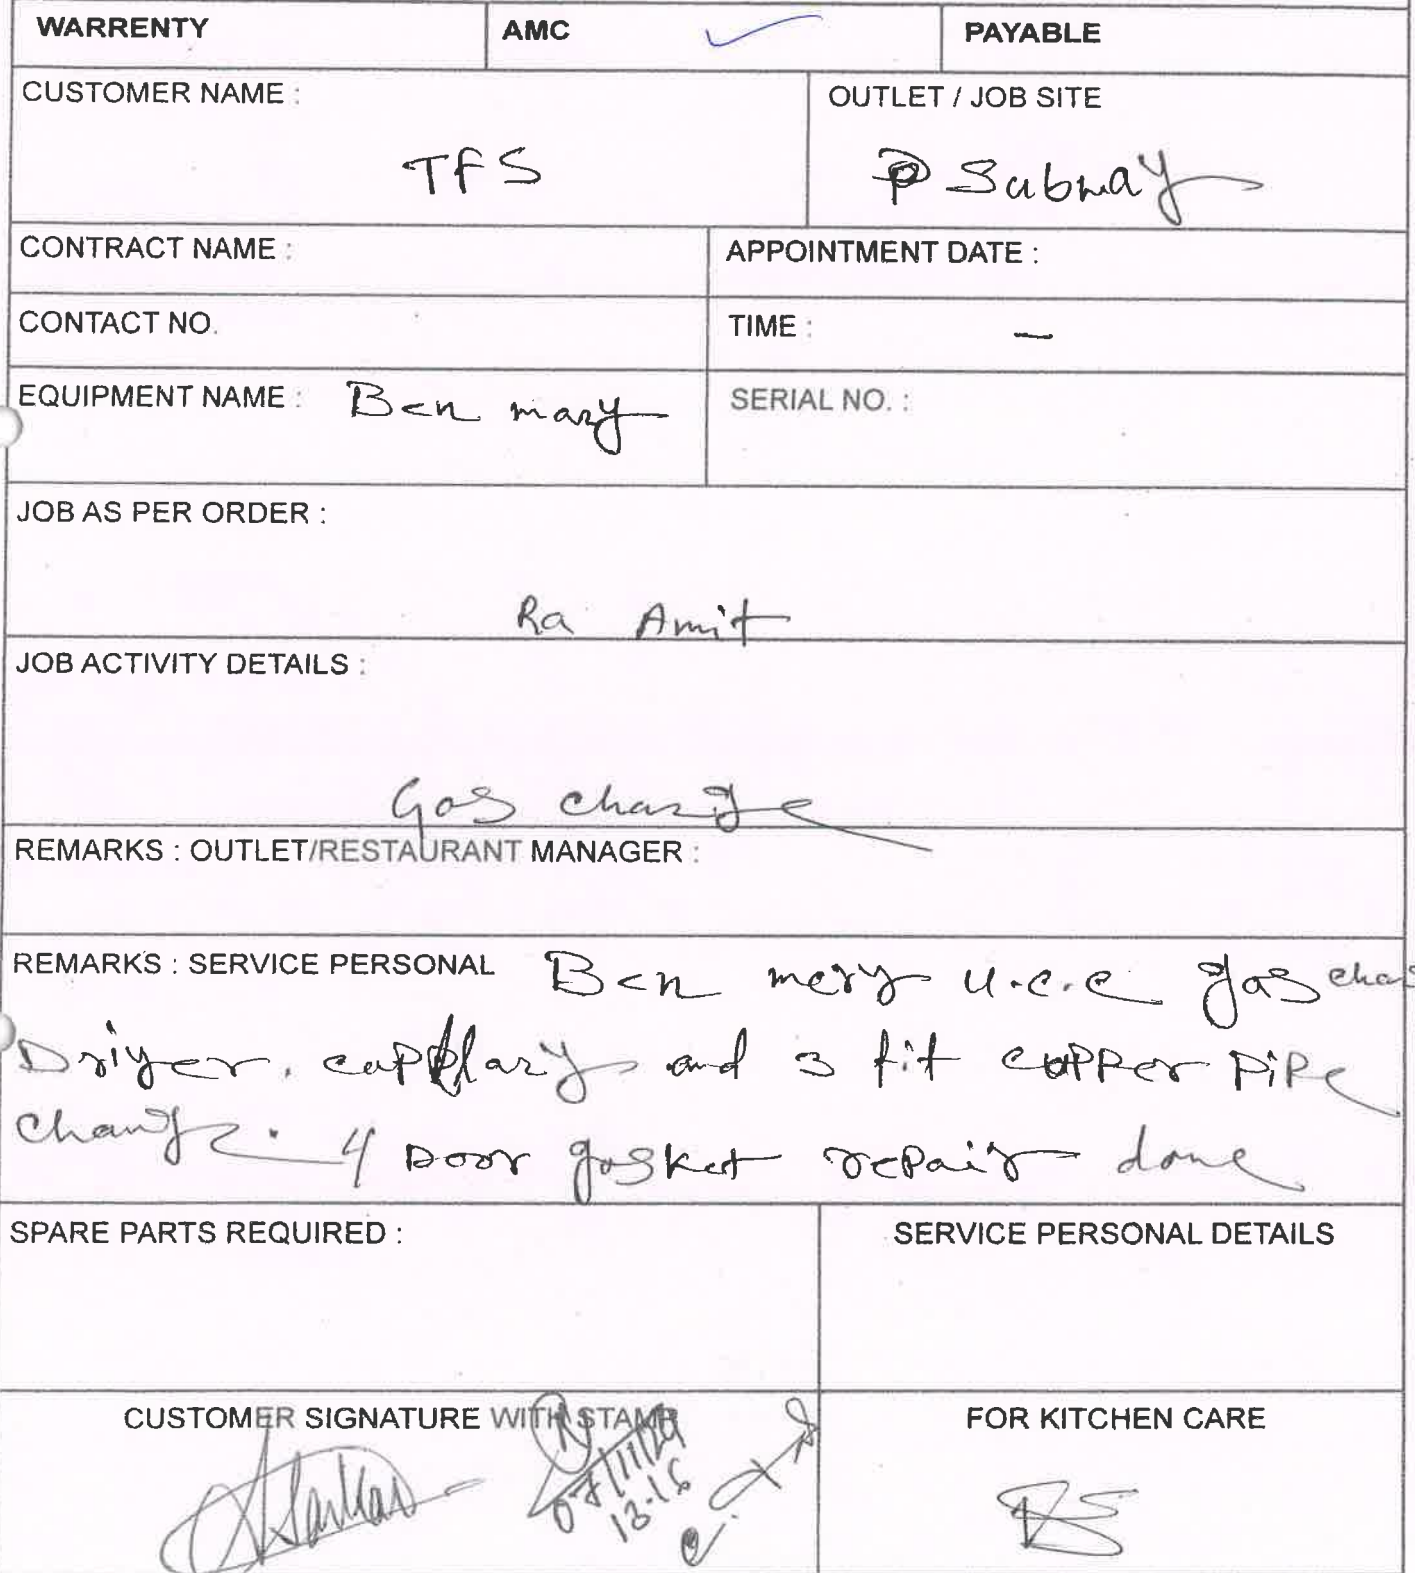 WARRENTY AMC ✓ PAYABLE
CUSTOMER NAME : OUTLET / JOB SITE
TFS Subway
CONTRACT NAME : APPOINTMENT DATE :
CONTACT NO. TIME : —
EQUIPMENT NAME : Ben mary SERIAL NO. :
JOB AS PER ORDER :
Ra Amit
JOB ACTIVITY DETAILS :
Gas charge
REMARKS : OUTLET/RESTAURANT MANAGER :
REMARKS : SERVICE PERSONAL Ben mery u.c.c gas
Driyer, and 3 fit copper pipe
change. 4 Door gasket repair done
SPARE PARTS REQUIRED : SERVICE PERSONAL DETAILS
CUSTOMER SIGNATURE WITH STAMP FOR KITCHEN CARE